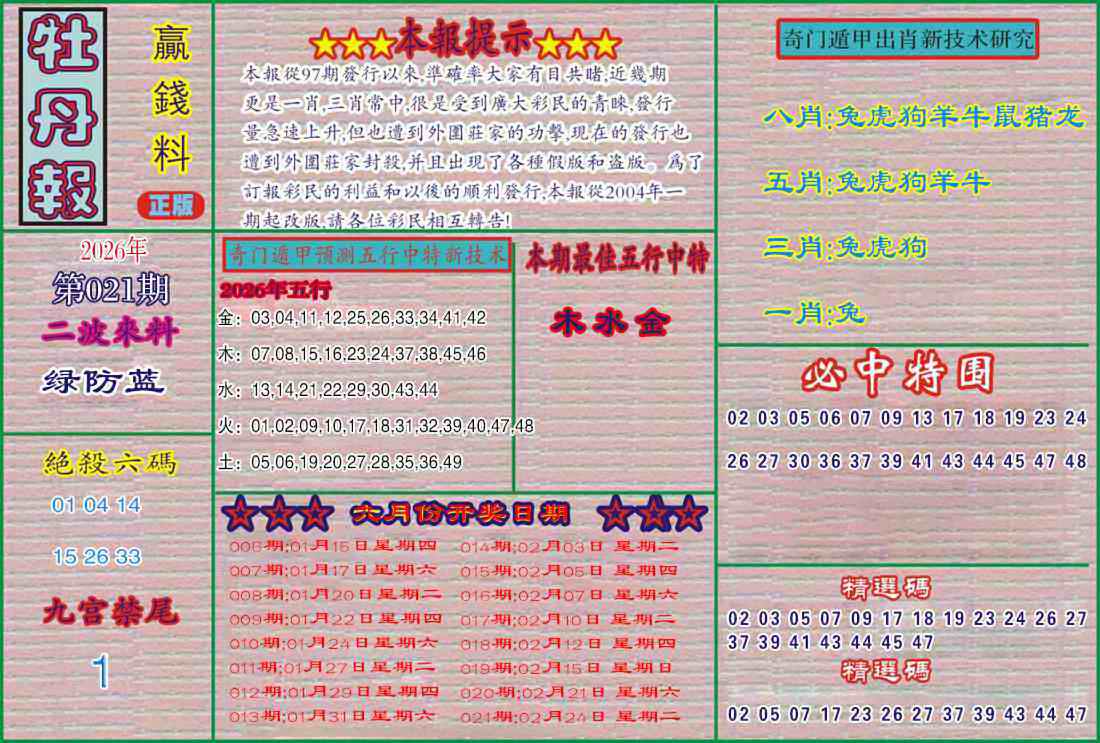 牡丹報
贏錢料
正版
2026年
第021期
二波來料
绿防蓝
絕殺六碼
01 04 14
15 26 33
九宫禁尾
1
★★★本報提示★★★
本報從97期發行以來,準確率大家有目共睹,近幾期
更是一肖,三肖常中,很是受到廣大彩民的青睞,發行
量急速上升,但也遭到外圍莊家的功擊,現在的發行也
遭到外圍莊家封殺,并且出現了各種假版和盗版。爲了
訂報彩民的利益和以後的順利發行,本報從2004年一
期起改版,請各位彩民相互轉告!
奇门遁甲預测五行中特新技术
2026年五行
金：03,04,11,12,25,26,33,34,41,42
木：07,08,15,16,23,24,37,38,45,46
水：13,14,21,22,29,30,43,44
火：01,02,09,10,17,18,31,32,39,40,47,48
土：05,06,19,20,27,28,35,36,49
本期最佳五行中特
木水金
★★★ 六月份开奖日期 ★★★
006期;01月15日星期四 014期;02月03日 星期二
007期;01月17日星期六 015期;02月05日 星期四
008期;01月20日星期二 016期;02月07日 星期六
009期;01月22日星期四 017期;02月10日 星期二
010期;01月24日星期六 018期;02月12日 星期四
011期;01月27日星期二 019期;02月15日 星期日
012期;01月29日星期四 020期;02月21日 星期六
013期;01月31日星期六 021期;02月24日 星期二
奇门遁甲出肖新技术研究
八肖:兔虎狗羊牛鼠猪龙
五肖:兔虎狗羊牛
三肖:兔虎狗
一肖:兔
必中特围
02 03 05 06 07 09 13 17 18 19 23 24
26 27 30 36 37 39 41 43 44 45 47 48
精選碼
02 03 05 07 09 17 18 19 23 24 26 27
37 39 41 43 44 45 47
精選碼
02 05 07 17 23 26 27 37 39 43 44 47